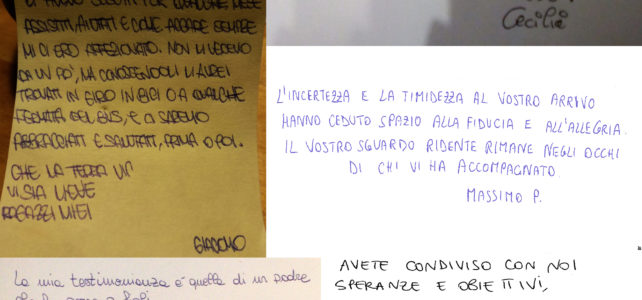 VI HANNO SEGUITI PER QUALCHE MESE
ASSISTITI, AIUTATI E COME. ACCADE SEMPRE
MI CI ERO AFFEZIONATO. NON LI VEDEVO
DA UN PO', MA CONOSCENDOLI LI AVREI
TROVATI IN GIRO IN BICI O A QUALCHE
FERMATA DEL BUS, E CI SAREMO
ABBRACCIATI E SALUTATI, PRIMA O POI.
CHE LA TERRA
VI SIA LIEVE
RAGAZZI MIEI
GIACOMO
Cecilia
L'INCERTEZZA E LA TIMIDEZZA AL VOSTRO ARRIVO
HANNO CEDUTO SPAZIO ALLA FIDUCIA E ALL'ALLEGRIA.
IL VOSTRO SGUARDO RIDENTE RIMANE NEGLI OCCHI
DI CHI VI HA ACCOMPAGNATO.
MASSIMO P.
La mia testimonianza è quella di un padre
AVETE CONDIVISO CON NOI
SPERANZE E OBIETTIVI,